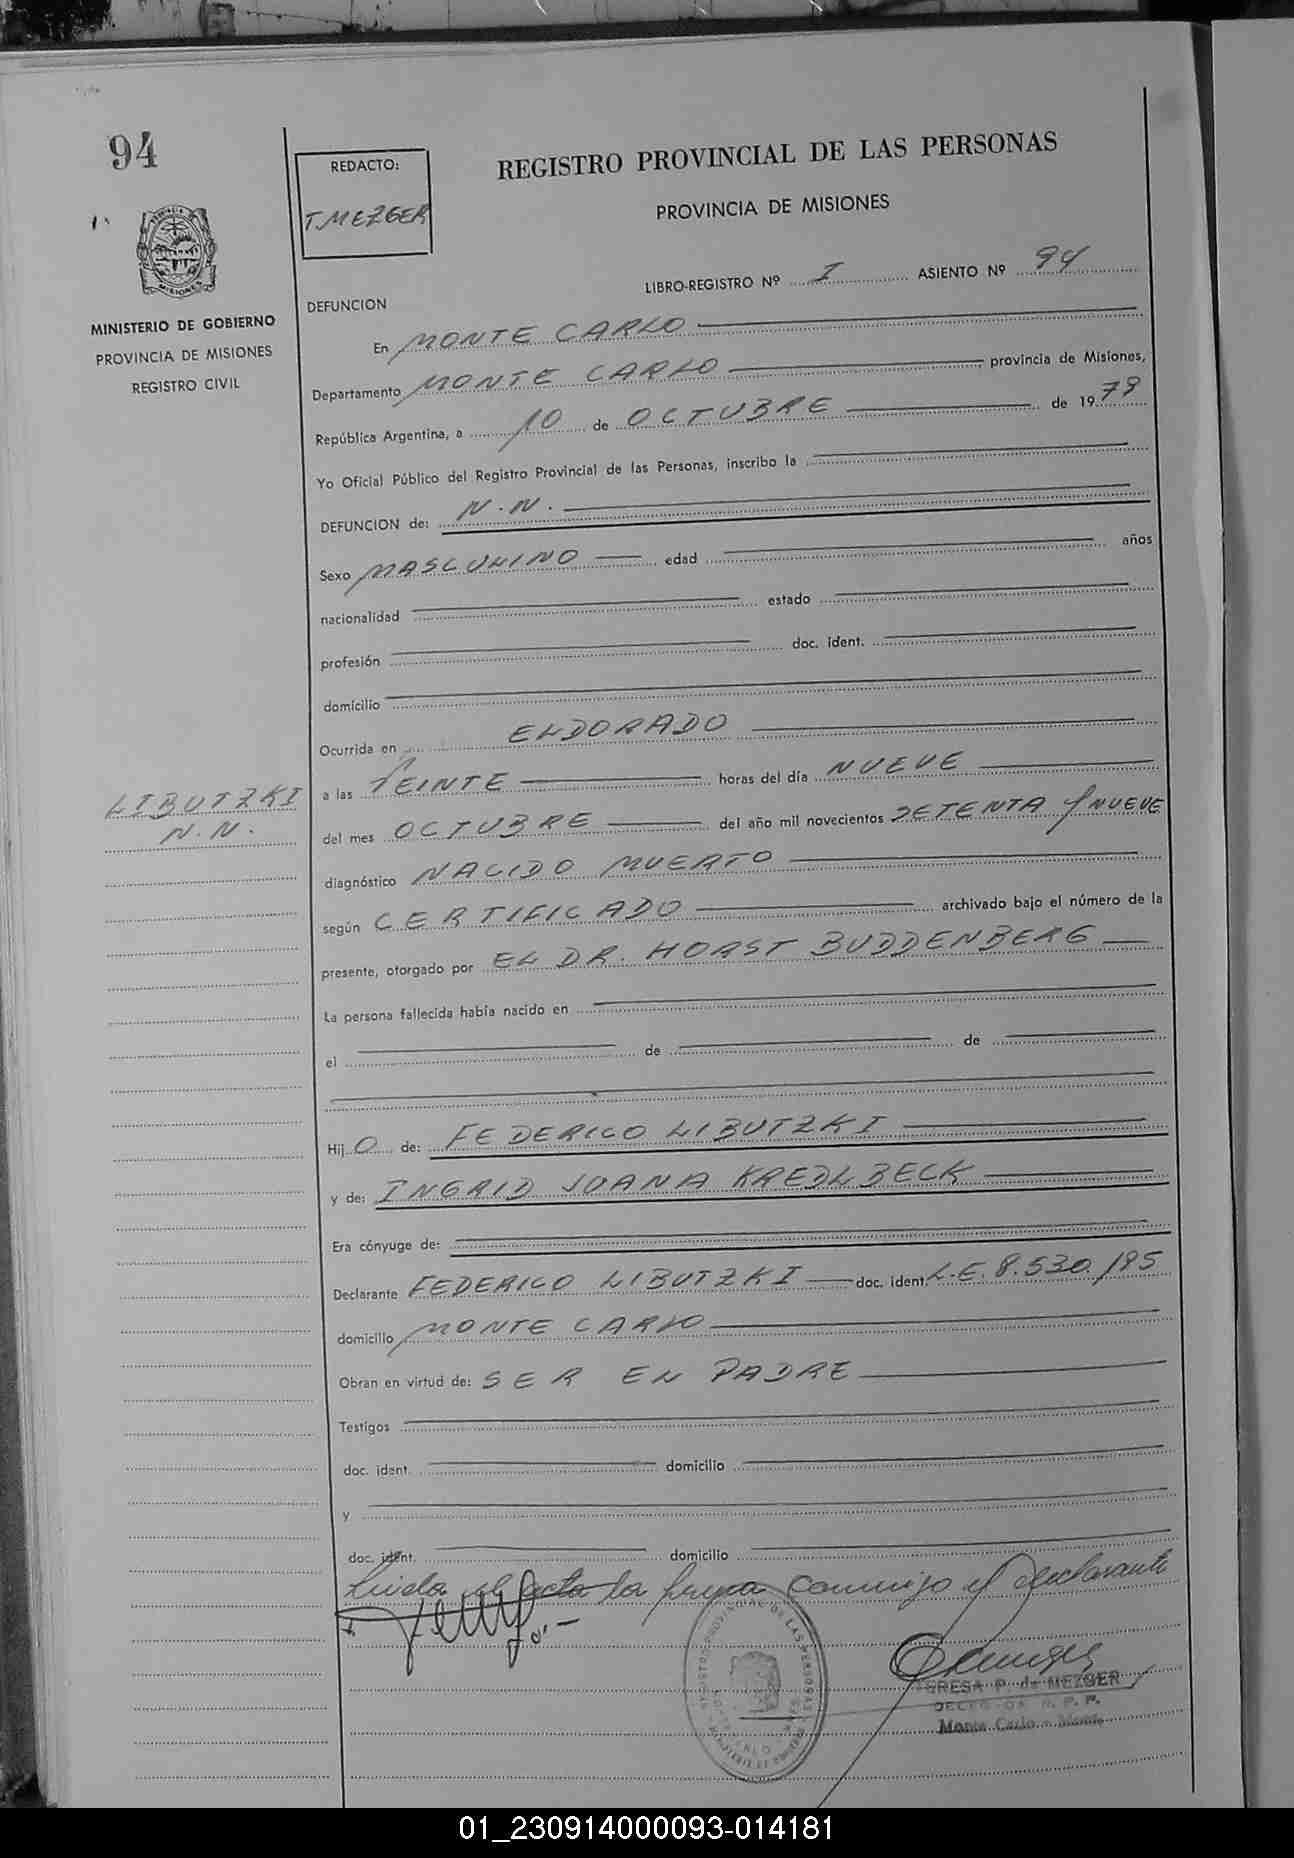 94
REDACTO:
T. MEZGER
REGISTRO PROVINCIAL DE LAS PERSONAS
PROVINCIA DE MISIONES
MISIONES
MINISTERIO DE GOBIERNO
PROVINCIA DE MISIONES
REGISTRO CIVIL
LIBRO-REGISTRO Nº I ASIENTO Nº 94
DEFUNCION
En MONTE CARLO
Departamento MONTE CARLO provincia de Misiones,
República Argentina, a 10 de OCTUBRE de 1979
Yo Oficial Público del Registro Provincial de las Personas, inscribo la
DEFUNCION de: N.N.
Sexo MASCULINO edad años
nacionalidad estado
profesión doc. ident.
domicilio
Ocurrida en ELDORADO
LIBUTZKI
N.N.
a las VEINTE horas del día NUEVE
del mes OCTUBRE del año mil novecientos SETENTA Y NUEVE
diagnóstico NACIDO MUERTO
según CERTIFICADO archivado bajo el número de la
presente, otorgado por EL DR. HORST BUDDENBERG
La persona fallecida había nacido en
el de de
Hij O de: FEDERICO LIBUTZKI
y de: INGRID JUANA KREDLBECK
Era cónyuge de:
Declarante FEDERICO LIBUTZKI doc. ident. L.E. 8.530.195
domicilio MONTE CARLO
Obran en virtud de: SER EL PADRE
Testigos
doc. ident. domicilio
y
doc. ident. domicilio
Leida el acta la firma conmigo y declarante
TERESA P. de MEZGER
DELEGADA R. P. P.
Monte Carlo - Mnes.
01_230914000093-014181